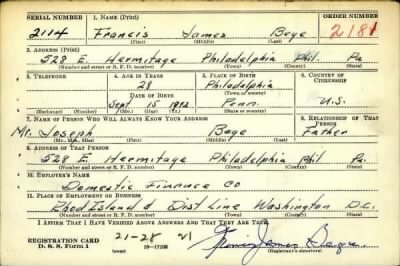 SERIAL NUMBER 1. NAME (Print) ORDER NUMBER
2114 Francis James Bege 2181
(First) (Middle) (Last)
2. ADDRESS (Print)
528 E. Hermitage Philadelphia Phil. Pa
(Number and street or R. F. D. number) (Town) (County) (State)
3. TELEPHONE 4. AGE IN YEARS 5. PLACE OF BIRTH 6. COUNTRY OF CITIZENSHIP
28 Philadelphia
DATE OF BIRTH (Town or county)
Sept 15 1912 Penn. U.S.
(Exchange) (Number) (Mo.) (Day) (Yr.) (State or country)
7. NAME OF PERSON WHO WILL ALWAYS KNOW YOUR ADDRESS 8. RELATIONSHIP OF THAT PERSON
Mr. Joseph Bege Father
(Mr., Mrs., Miss) (First) (Middle) (Last)
9. ADDRESS OF THAT PERSON
528 E. Hermitage Philadelphia Phil Pa.
(Number and street or R. F. D. number) (Town) (County) (State)
10. EMPLOYER'S NAME
Domestic Finance Co
11. PLACE OF EMPLOYMENT OR BUSINESS
Rhod Island & Dist Line Washington D.C.
(Number and street or R. F. D. number) (Town) (County) (State)
I AFFIRM THAT I HAVE VERIFIED ABOVE ANSWERS AND THAT THEY ARE TRUE.
REGISTRATION CARD 21-28 21 Francis James Bege
D. S. S. Form 1 16—17105 (Registrant's signature)